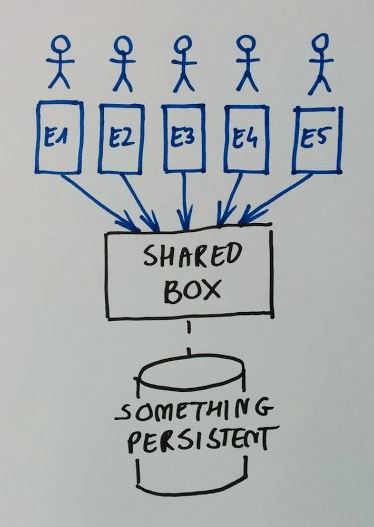 E1 E2 E3 E4 E5
SHARED
BOX
SOMETHING
PERSISTENT